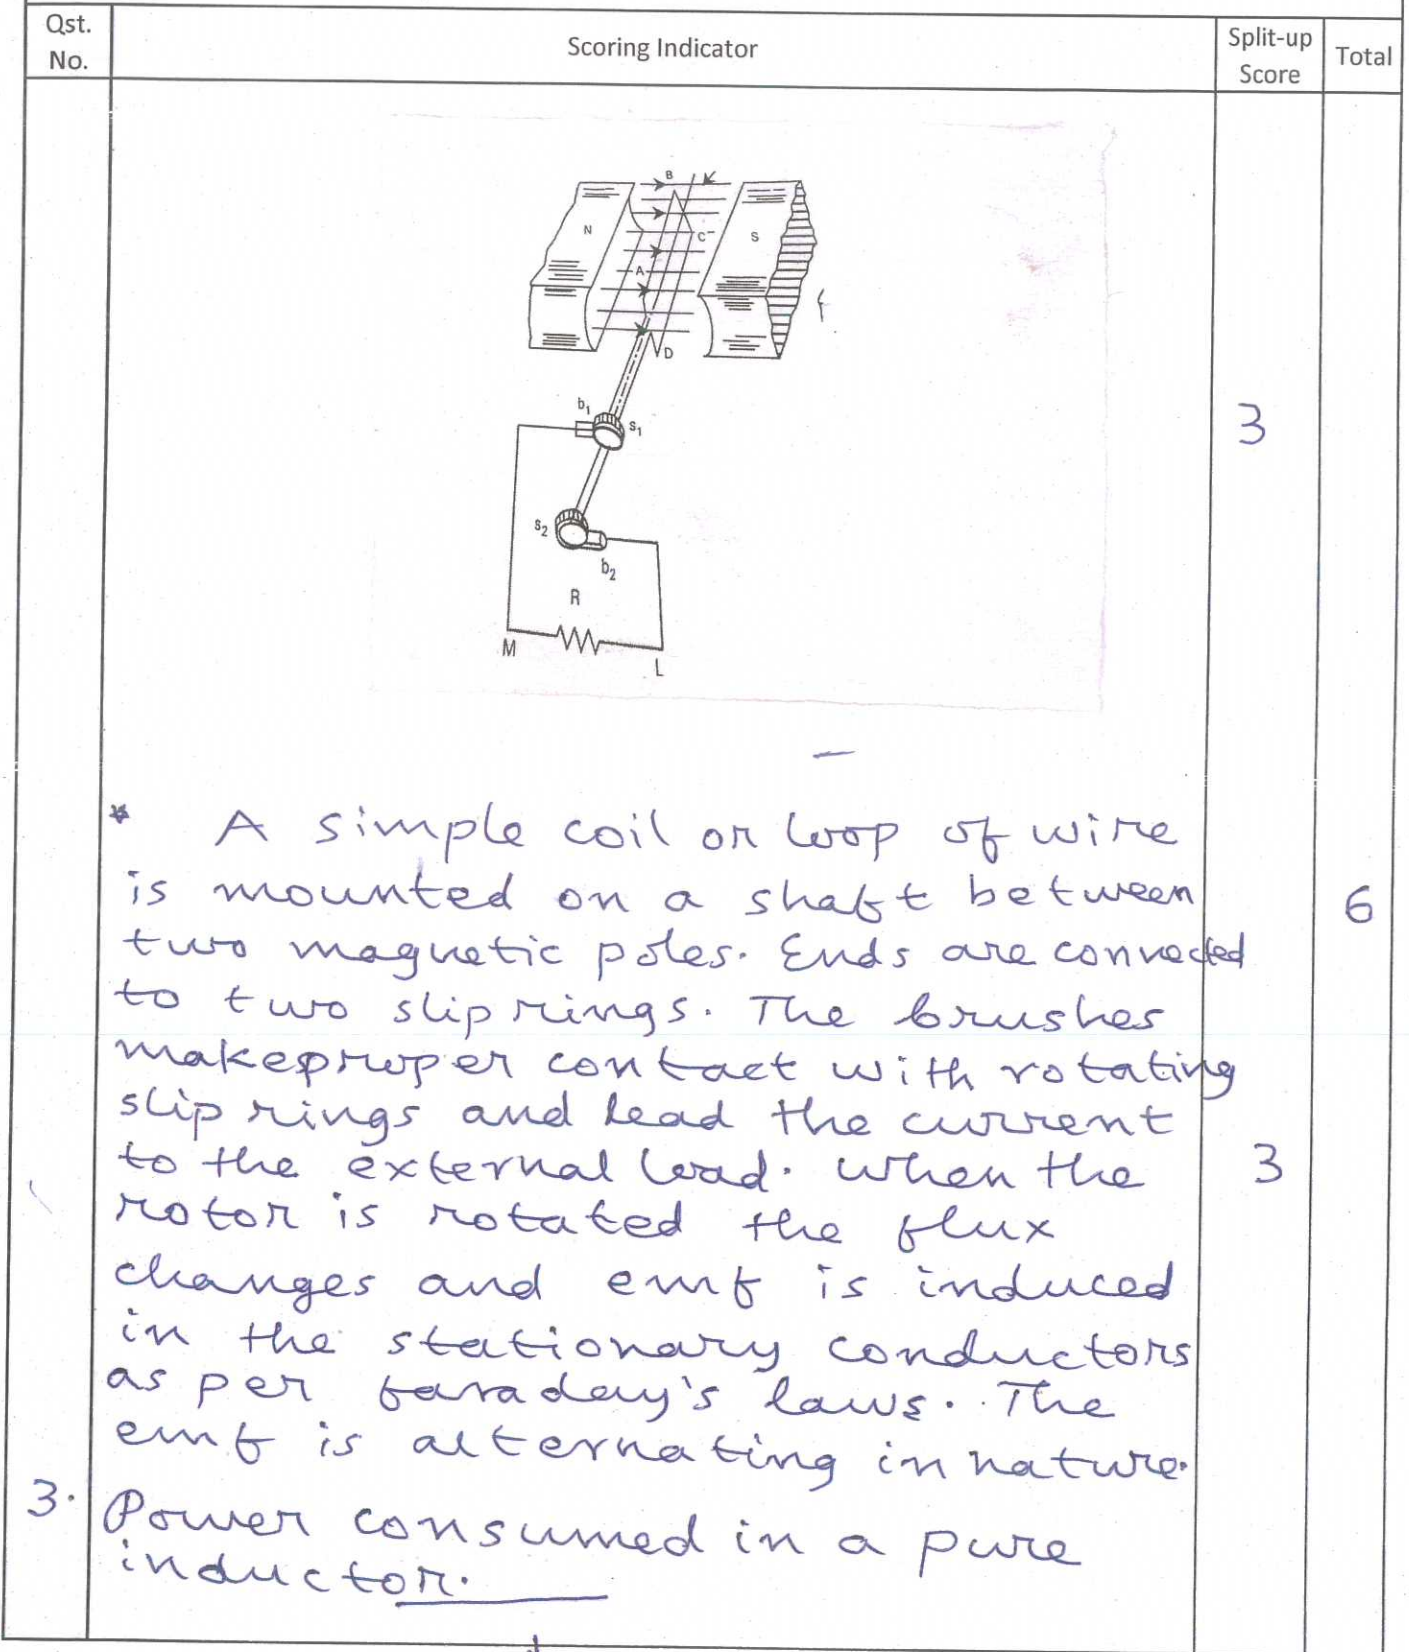 Qst.
No.
Scoring Indicator
Split-up
Score
Total
B
N
C
S
A
D
b1
s1
3
s2
b2
R
M
L
* A simple coil or loop of wire
is mounted on a shaft between
6
two magnetic poles. Ends are connected
to two slip rings. The brushes
make proper contact with rotating
slip rings and lead the current
to the external load. when the
3
rotor is rotated the flux
changes and emf is induced
in the stationary conductors
as per faraday's laws. The
emf is alternating in nature.
3. Power consumed in a pure
inductor.